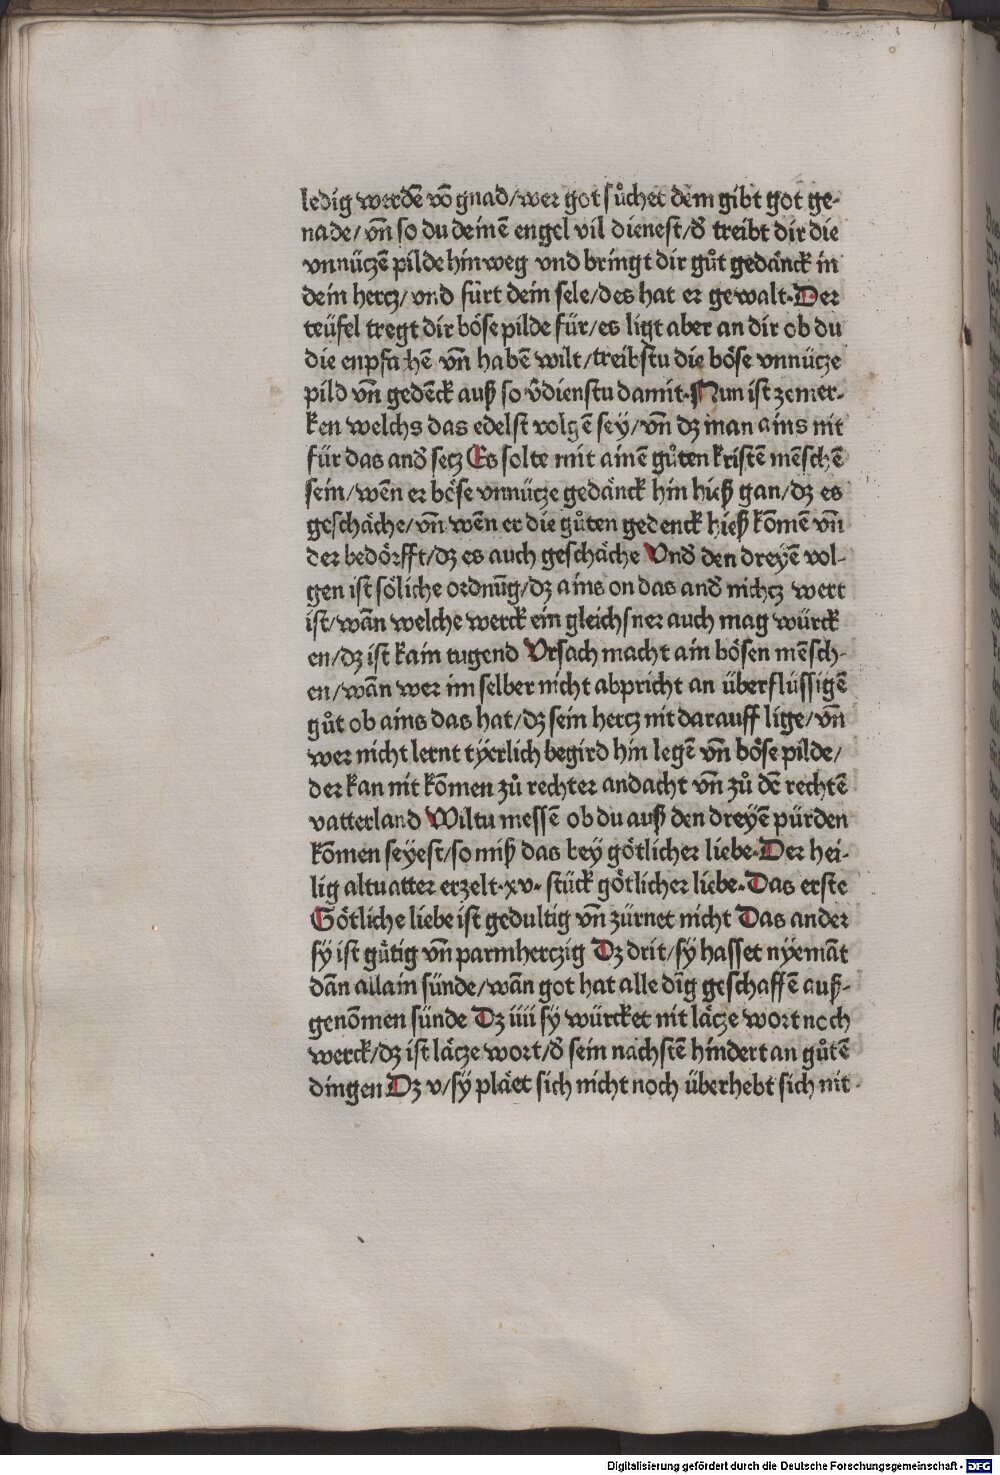 ledig werdē vō gnad/wer got sůchet dem gibt got ge-
nade/vn̄ so du deinē engel vil dienest/d̄ treibt dir die
vnnüczē pilde hinweg vnd bringt dir gůt gedänck in
dein hercz/vnd fürt dein sele/des hat er gewalt·Der
teüfel tregt dir böse pilde für/es ligt aber an dir ob du
die enpfahē vn̄ habē wilt/treibstu die böse vnnücze
pild vn̄ gedēck auß so v̄dienstu damit·Nun ist ze mer-
ken welchs das edelst volgē sey/vn̄ dz man ains nit
für das and̄ secz Es solte mit ainē gůten kristē mēschē
sein/wēn er böse vnnücze gedänck hin hieß gan/dz es
geschäche/vn̄ wēn er die gůten gedenck hieß kōmē vn̄
der bedörfft/dz es auch geschäche Vnd̄ den dreyē vol-
gen ist söliche ordnūg/dz ains on das and̄ nichcz wert
ist/wān welche werck ein gleichsner auch mag würck
en/dz ist kain tugend Vrsach macht ain bösen mēsch-
en/wān wer im selber nicht abpricht an überflüssigē
gůt ob ains das hat/dz sein hercz nit darauff lige/vn̄
wer nicht lernt tÿerlich begird hin legē vn̄ böse pilde/
der kan nit kōmen zů rechter andacht vn̄ zů dē rechtē
vatterland Wiltu messē ob du auß den dreyē pürden
kōmen seyest/so miß das bey götlicher liebe·Der hei-
lig altuatter erzelt·xv·stück götlicher liebe·Das erste
Götliche liebe ist gedultig vn̄ zürnet nicht Das ander
sÿ ist gůtig vn̄ parmherczig Dz drit/sÿ hasset nyemāt
dān allain sünde/wān got hat alle dīg geschaffē auß-
genōmen sünde Dz iiii sÿ würcket nit läcze wort noch
werck/dz ist läcze wort/d̄ sein nächstē hindert an gůtē
dingen Dz v/sÿ pläet sich nicht noch überhebt sich nit
Digitalisierung gefördert durch die Deutsche Forschungsgemeinschaft - DFG